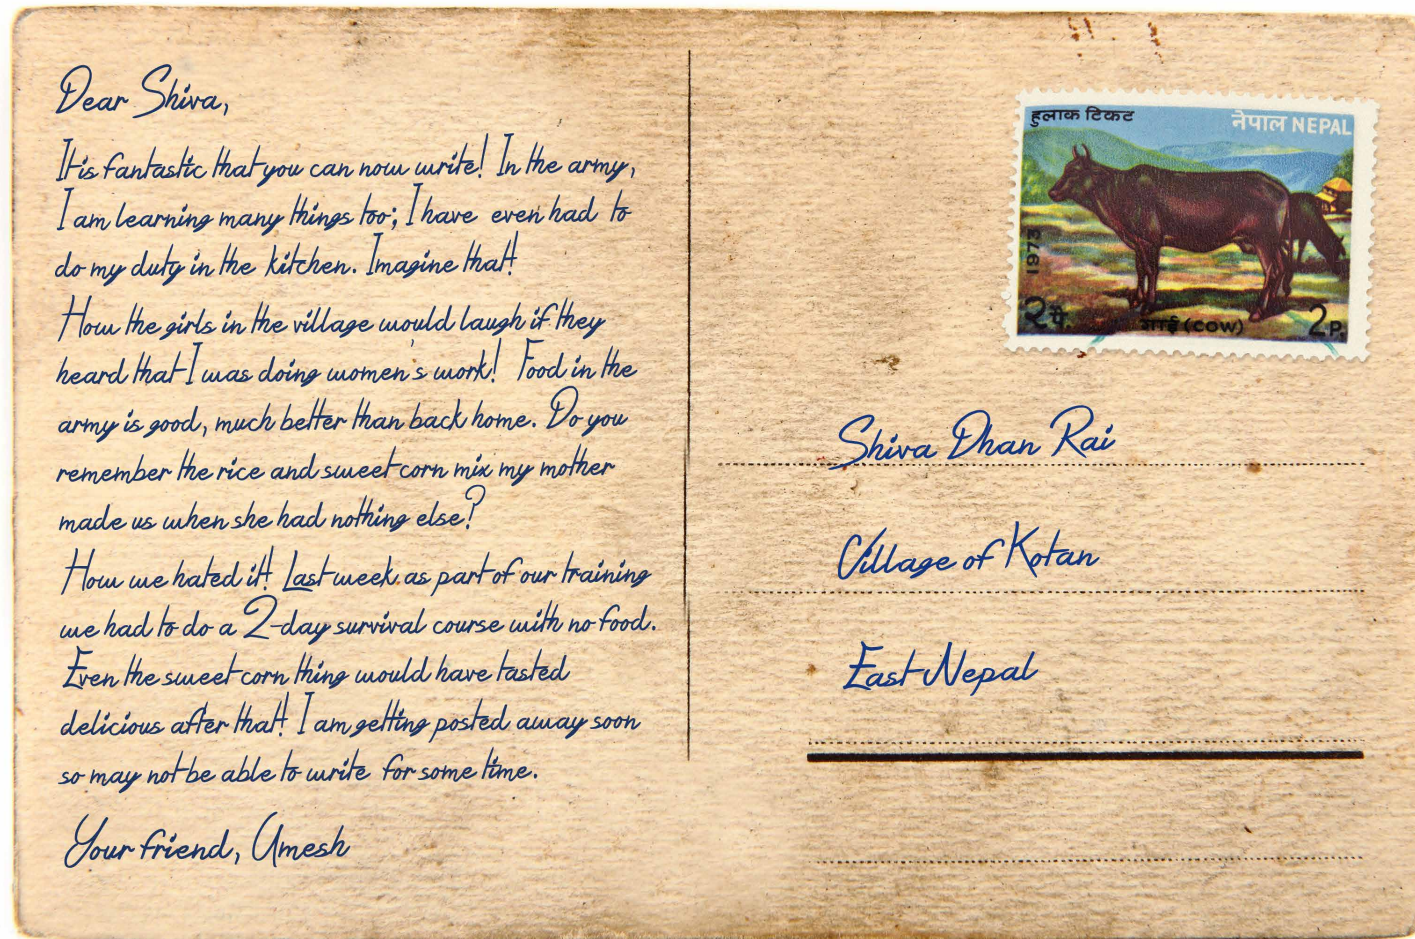 Dear Shiva,
It is fantastic that you can now write! In the army,
I am learning many things too; I have even had to
do my duty in the kitchen. Imagine that!
How the girls in the village would laugh if they
heard that I was doing women's work! Food in the
army is good, much better than back home. Do you
remember the rice and sweet corn mix my mother
made us when she had nothing else?
How we hated it! Last week as part of our training
we had to do a 2-day survival course with no food.
Even the sweet corn thing would have tasted
delicious after that! I am getting posted away soon
so may not be able to write for some time.
Your friend, Umesh
हुलाक टिकट
नेपाल NEPAL
1973
२ पै.
गाई (COW)
2 P.
Shiva Dhan Rai
Village of Kotan
East Nepal